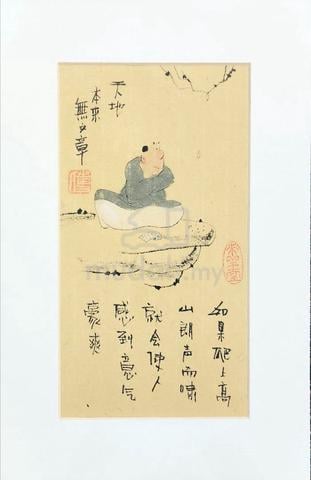 天地
本来
無文章
如果爬上高
山朗声而嘯
就会使人
感到意气
豪爽
mudah.my